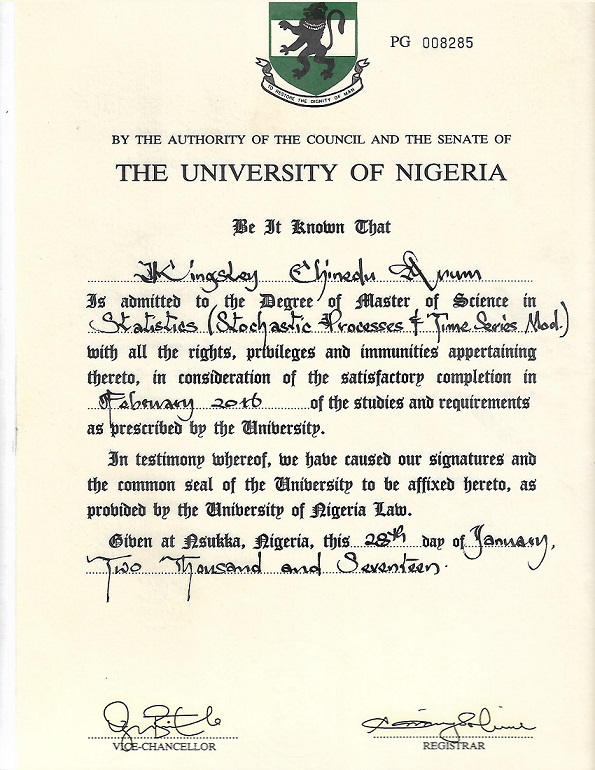 PG 008285
TO RESTORE THE DIGNITY OF MAN
BY THE AUTHORITY OF THE COUNCIL AND THE SENATE OF
THE UNIVERSITY OF NIGERIA
Be It Known That
Kingsley Chinedu Arum
Is admitted to the Degree of Master of Science in
Statistics (Stochastic Processes & Time Series Mod.)
with all the rights, privileges and immunities appertaining
thereto, in consideration of the satisfactory completion in
February 2016 of the studies and requirements
as prescribed by the University.
In testimony whereof, we have caused our signatures and
the common seal of the University to be affixed hereto, as
provided by the University of Nigeria Law.
Given at Nsukka, Nigeria, this 28th day of January,
Two Thousand and Seventeen.
VICE-CHANCELLOR
REGISTRAR